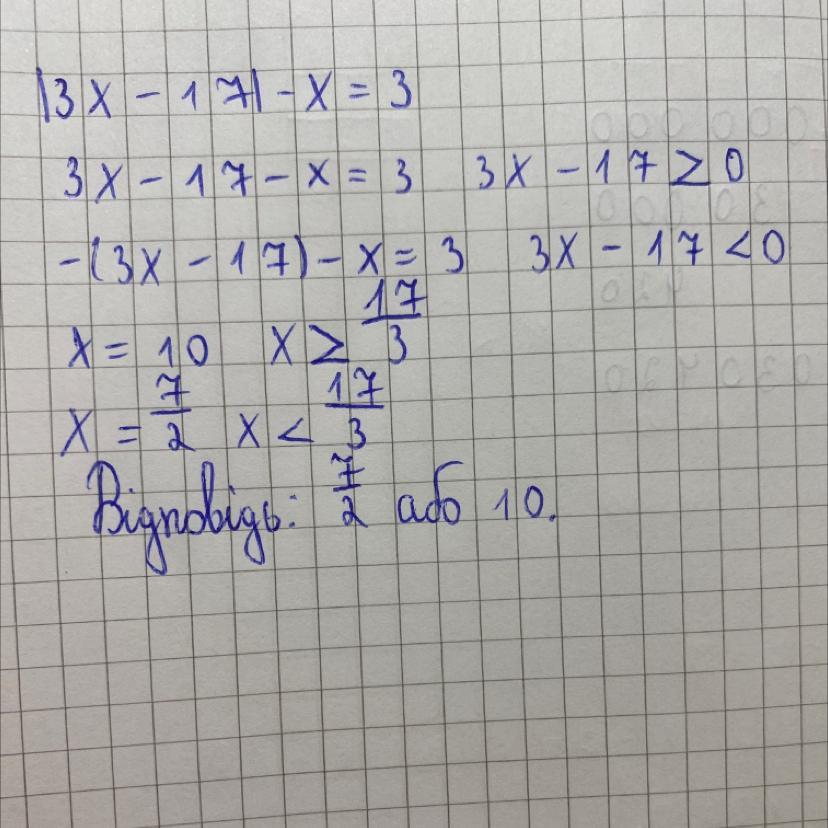 |3x - 17| - x = 3
3x - 17 - x = 3   3x - 17 ≥ 0
-(3x - 17) - x = 3   3x - 17 < 0
x = 10   x ≥ 17/3
x = 7/2   x < 17/3
Відповідь: 7/2 або 10.